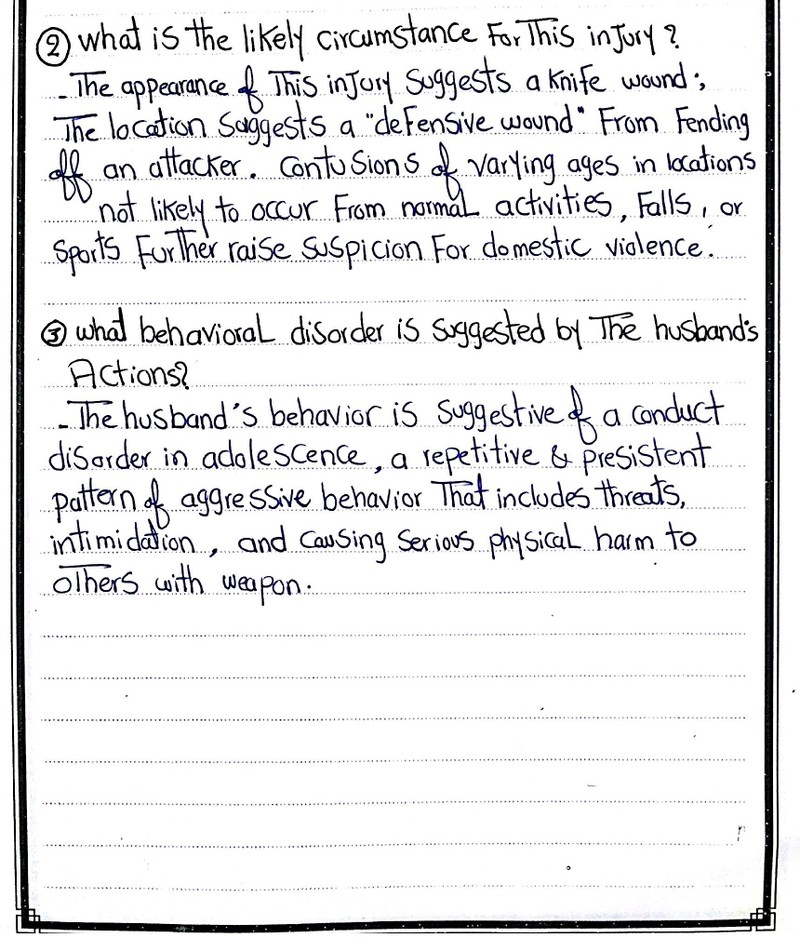 ② what is the likely circumstance For This injury?
- The appearance of This injury suggests a knife wound;
The location suggests a "defensive wound" From Fending
off an attacker. contusions of varying ages in locations
not likely to occur From normal activities, Falls, or
sports Further raise suspicion For domestic violence.
③ what behavioral disorder is suggested by The husband's
Actions?
- The husband's behavior is suggestive of a conduct
disorder in adolescence, a repetitive & presistent
pattern of aggressive behavior That includes threats,
intimidation, and causing serious physical harm to
others with weapon.